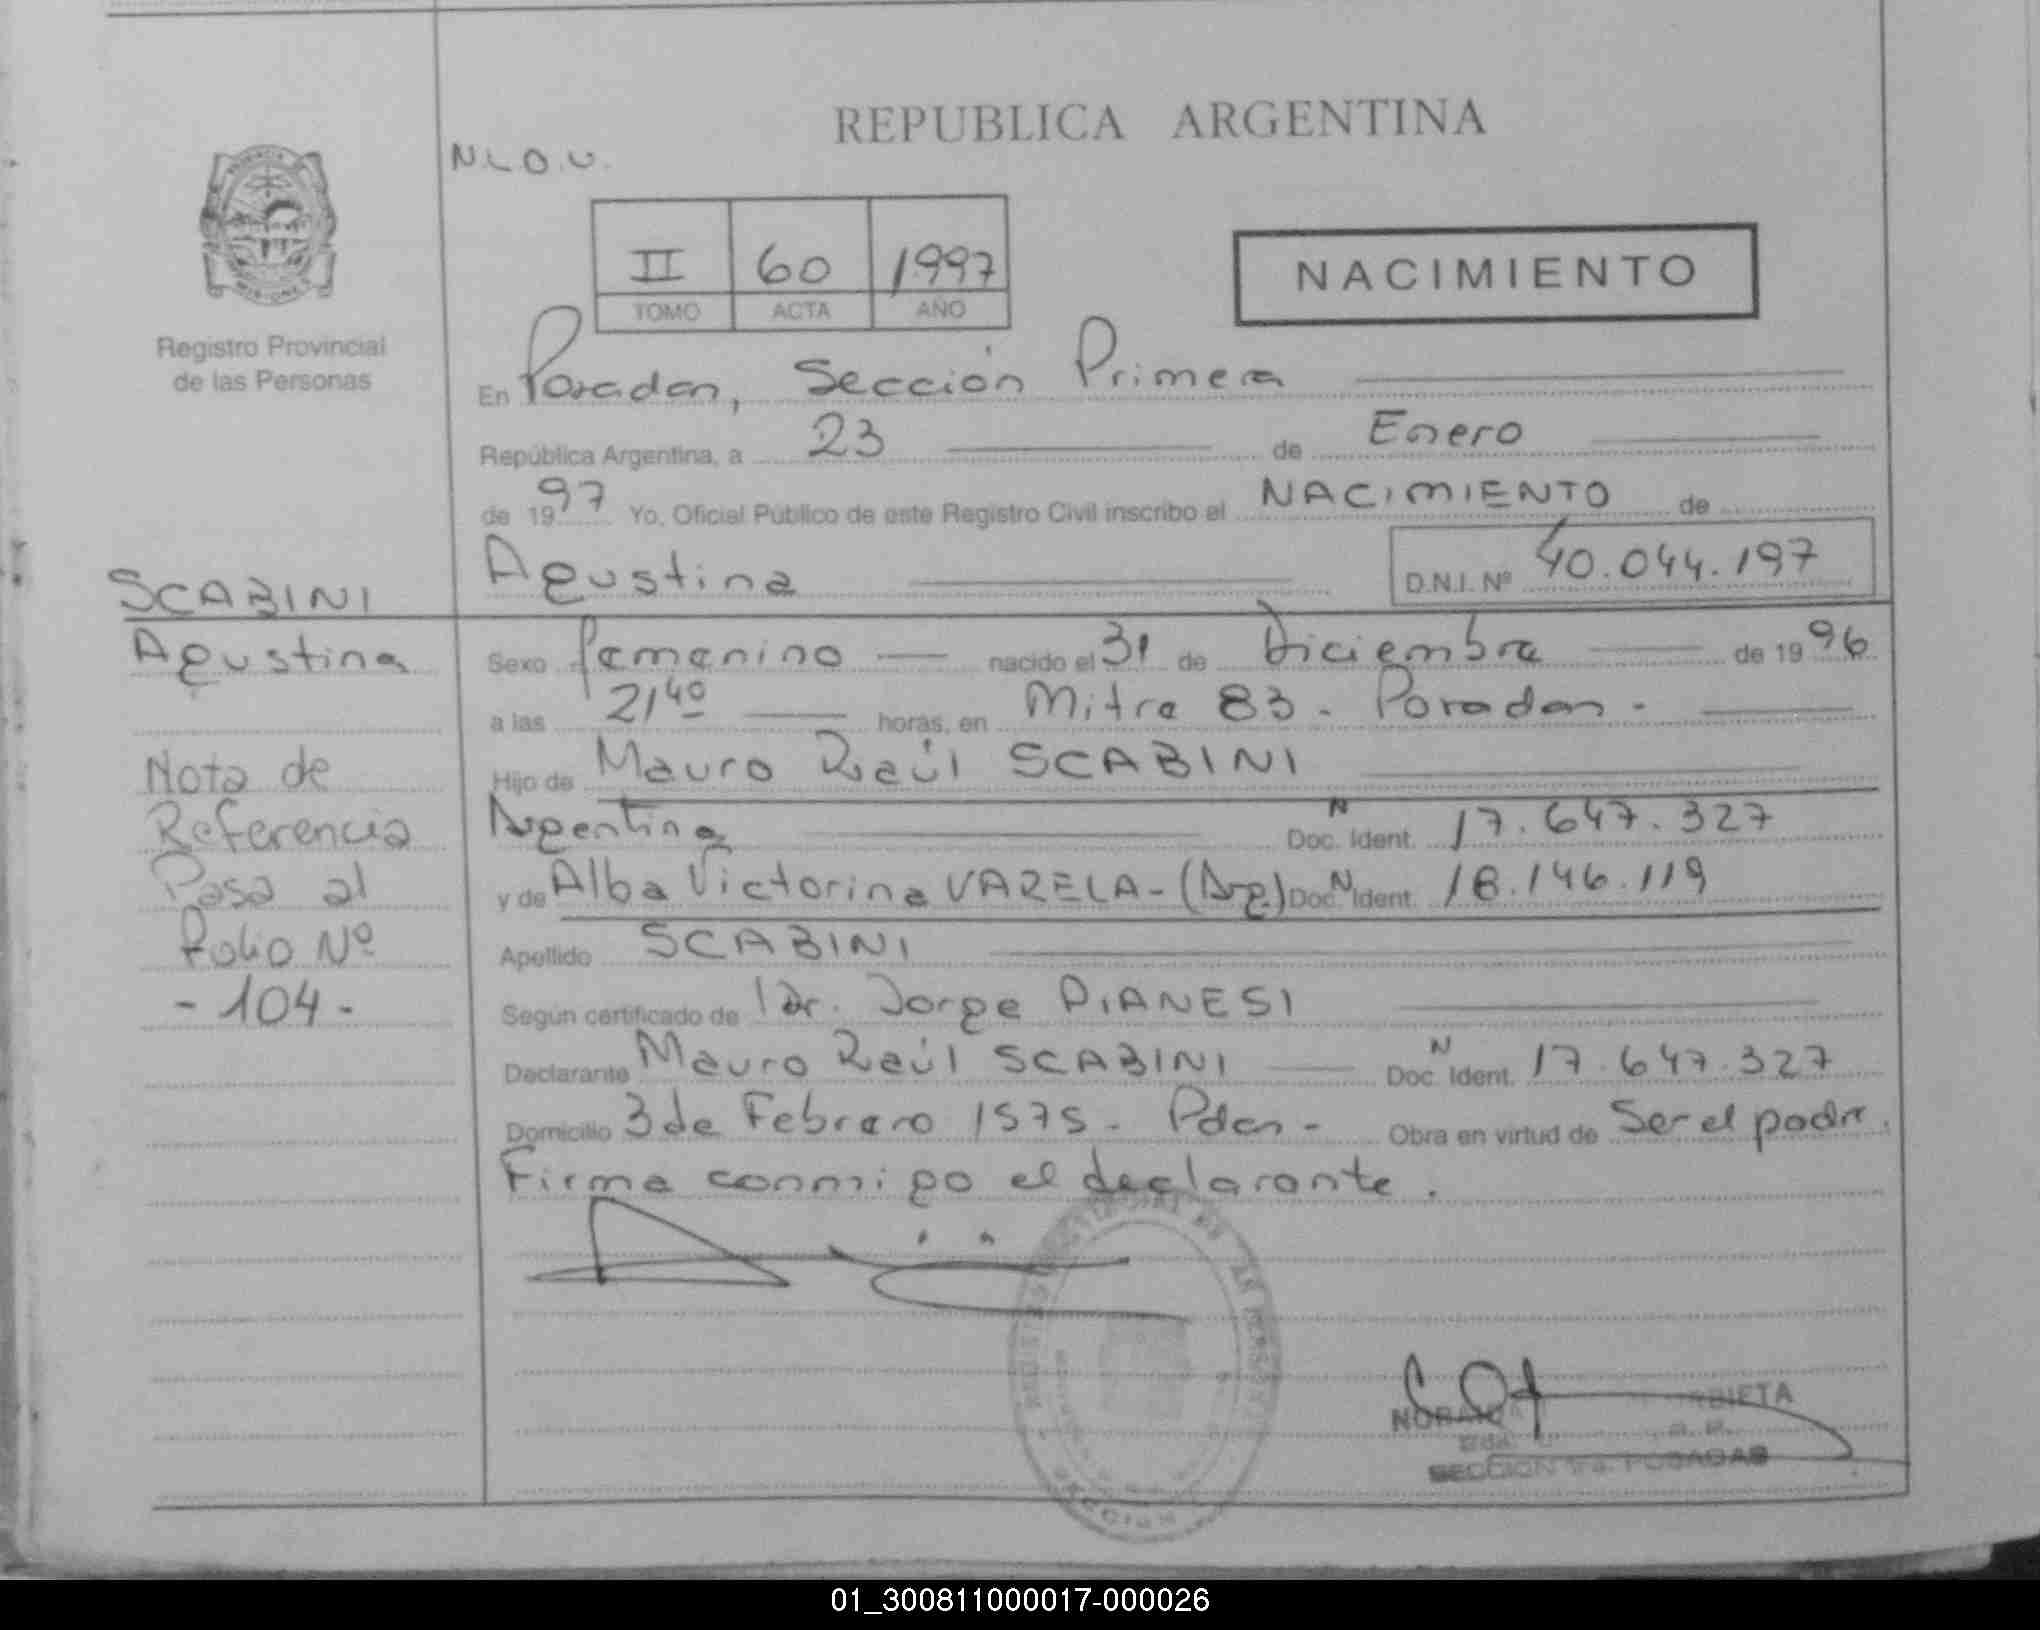 REPUBLICA ARGENTINA
N.L.O.U.
II 60 1997
TOMO ACTA AÑO
NACIMIENTO
Registro Provincial
de las Personas
MISIONES
En Posadas, Sección Primera
República Argentina, a 23 de Enero
de 1997 Yo, Oficial Público de este Registro Civil inscribo el NACIMIENTO de
Agustina D.N.I. Nº 40.044.197
SCABINI
Agustina
Nota de
Referencia
Pasa al
Folio Nº
- 104 -
Sexo femenino nacido el 31 de Diciembre de 1996
a las 21 40 horas, en Mitre 83 - Posadas -
Hijo de Mauro Raúl SCABINI
Argentina Doc. N Ident. 17.647.327
y de Alba Victorina VARELA - (Arg) Doc. N Ident. 18.146.119
Apellido SCABINI
Según certificado de Dr. Jorge PIANESI
Declarante Mauro Raúl SCABINI Doc. N Ident. 17.647.327
Domicilio 3 de Febrero 1575 - Pdas - Obra en virtud de Ser el padre.
Firma conmigo el declarante.
SECCION 1ra. POSADAS
01_300811000017-000026